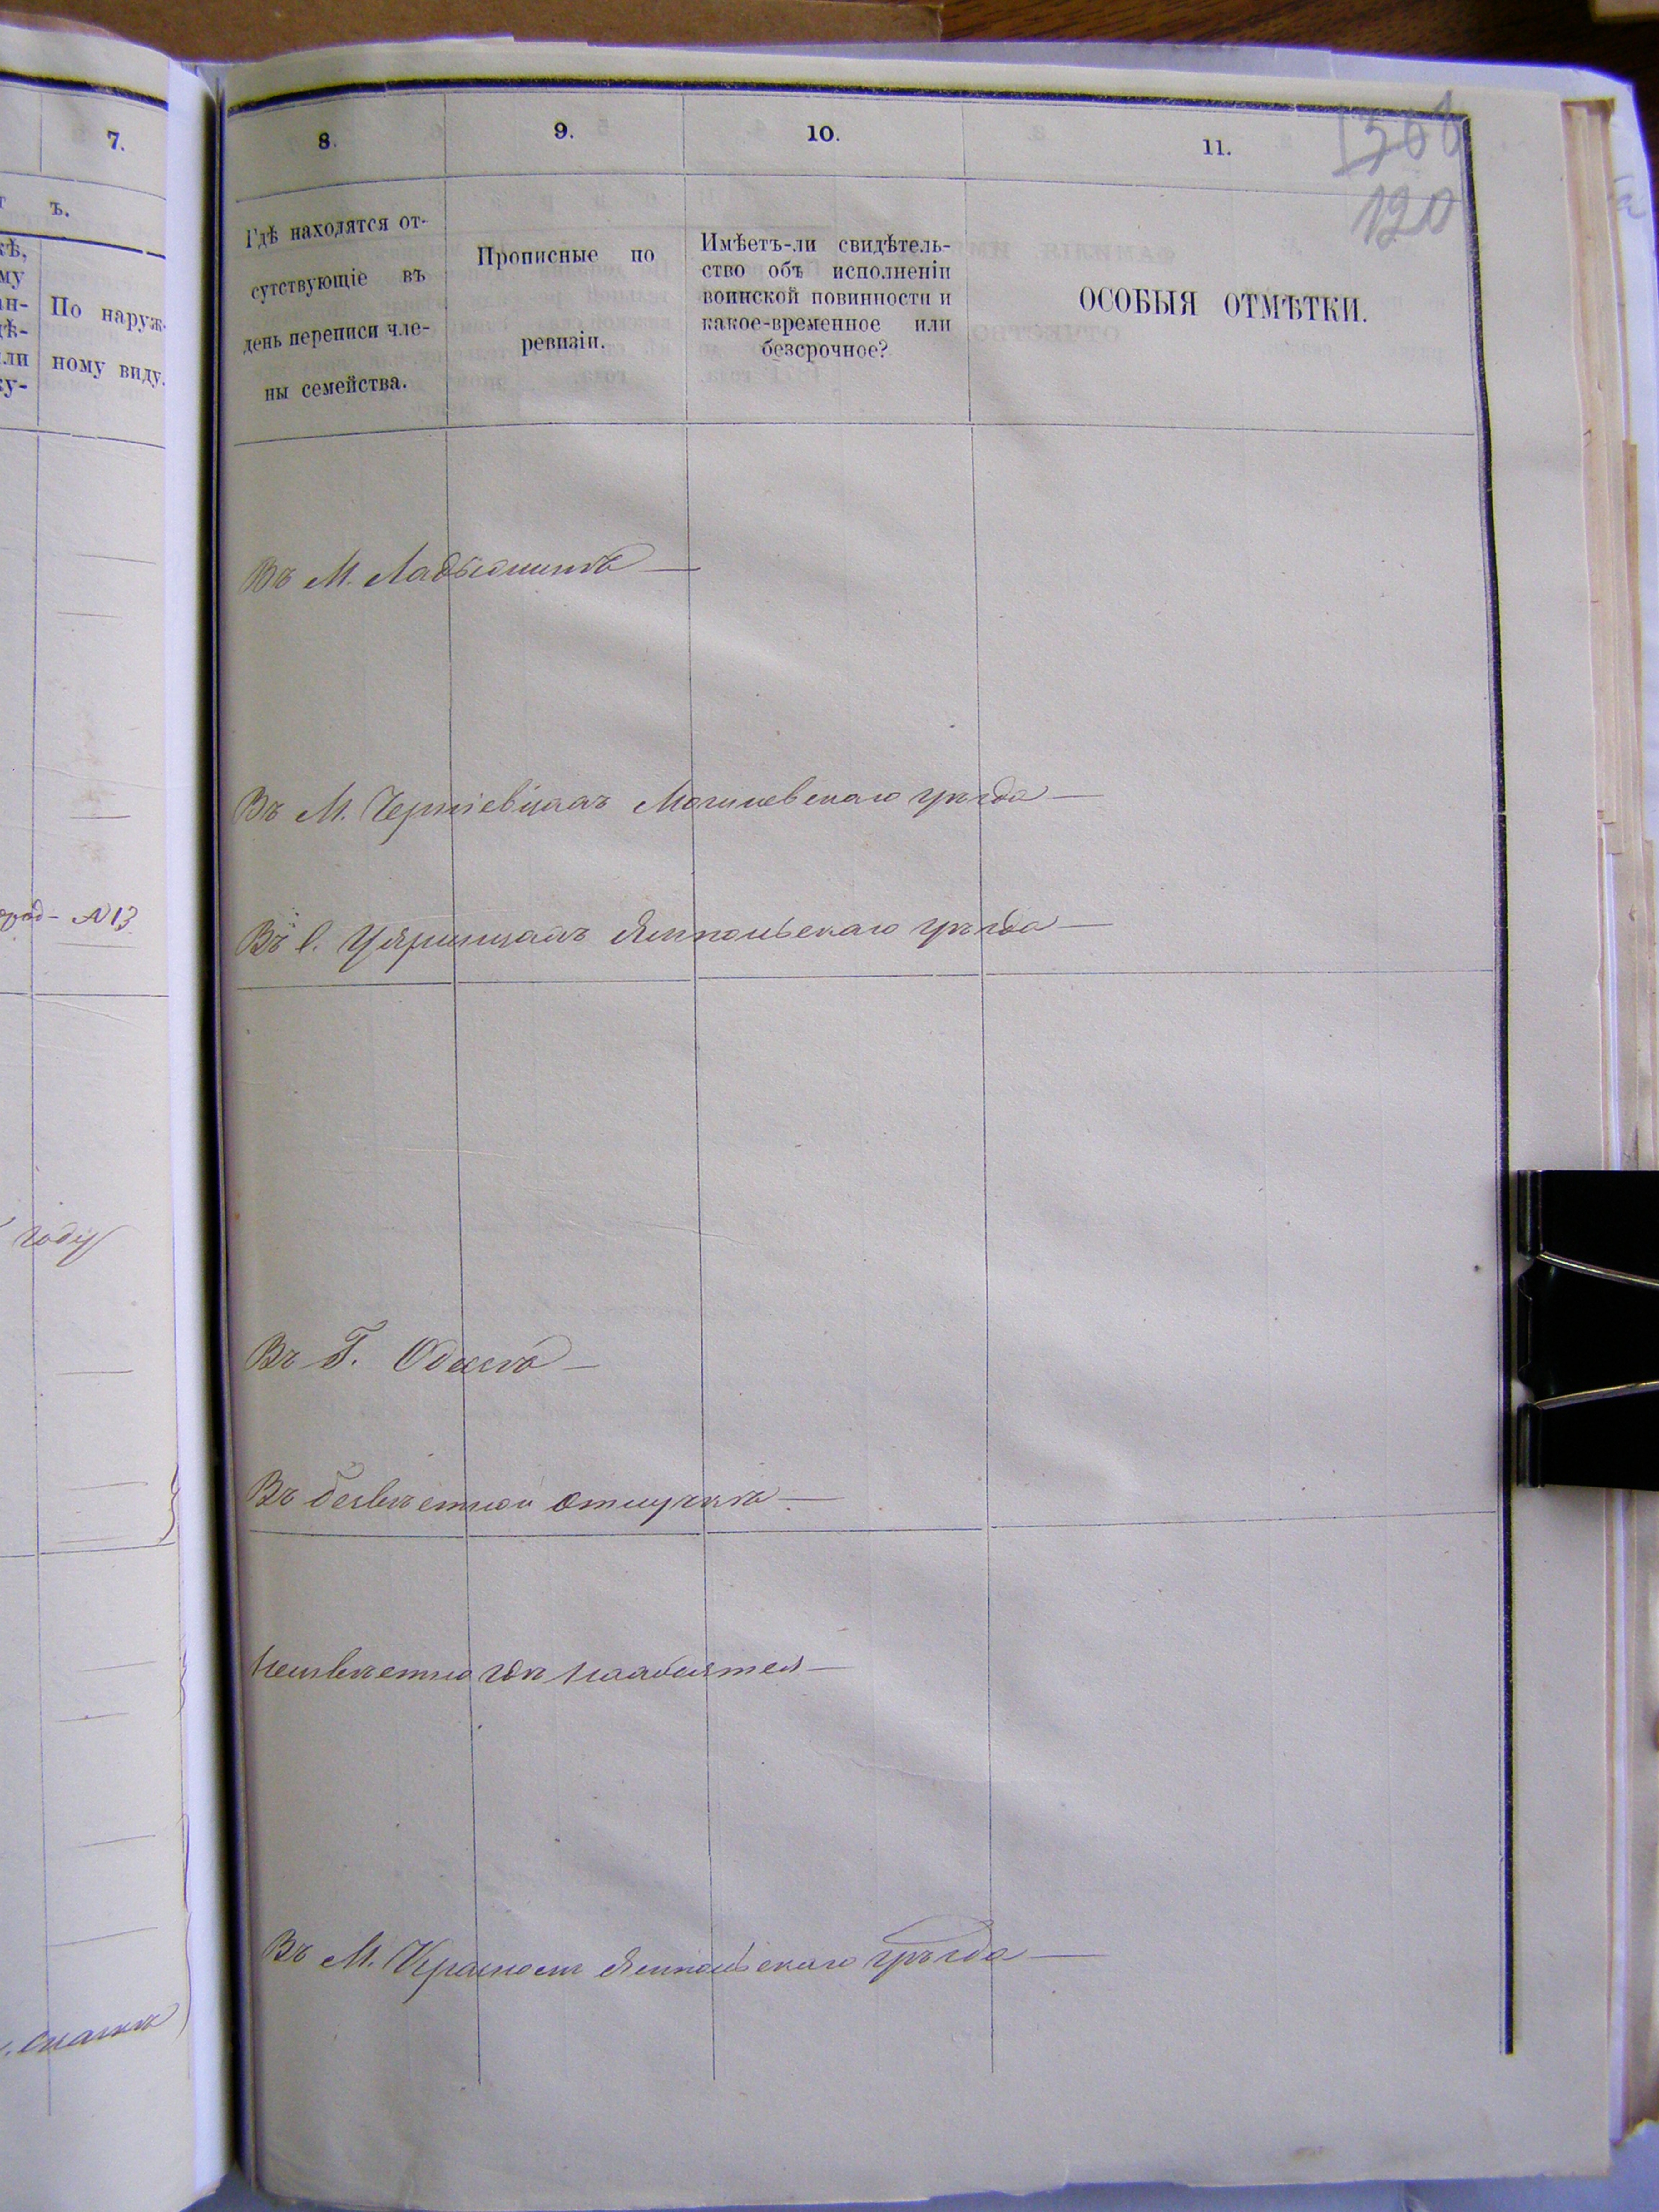 7.
ъ.
кѣ,
му
ан-
дѣ-
или
ку-
По наруж-
ному виду.
N 13
году
8.
9.
10.
11.
1368
120
Гдѣ находятся от-
сутствующіе въ
день переписи чле-
ны семейства.
Прописные по
ревизіи.
Имѣетъ-ли свидѣтель-
ство объ исполненіи
воинской повинности и
какое-временное или
безсрочное?
ОСОБЫЯ ОТМѢТКИ.
Въ М. Ладыжинѣ —
Въ М. Черніевцахъ Могилевскаго уѣзда —
Въ с. Ямпольскаго уѣзда —
Въ Г. Одессѣ —
Въ безвѣстной отлучкѣ —
Неизвѣстно гдѣ находится —
Въ М. Красномъ Ямпольскаго уѣзда —